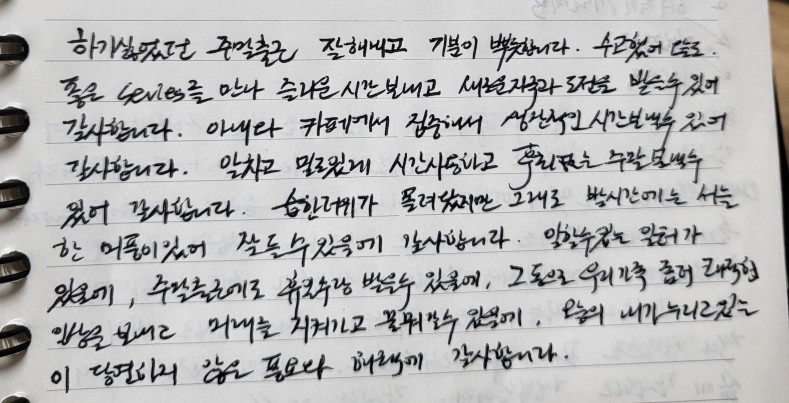 하기싫었던 주말출근 잘해내고 기분이 뿌듯합니다. 수고했어
좋은 series를 만나 즐거운 시간보내고 새로운자극과 도전을 받을수있어
감사합니다. 아내와 카페에서 집중해서 생산적인 시간보낼수있어
감사합니다. 알차고 밀도있게 시간사용하고 후회없는 주말보낼수
있어 감사합니다. 습한더위가 몰려왔지만 그래도 밤시간에는 서늘
한 바람이있어 잘들수있음에 감사합니다. 일할수있는 일터가
있음에, 주말출근에도 휴일수당 받을수 있음에, 그돈으로 우리가족 좀더 쾌적한
일상을 보내고 미래를 지켜가고 꿈꿔갈수 있음에, 오늘의 내가누리고있는
이 당연하지 않은 풍요와 혜택에 감사합니다.